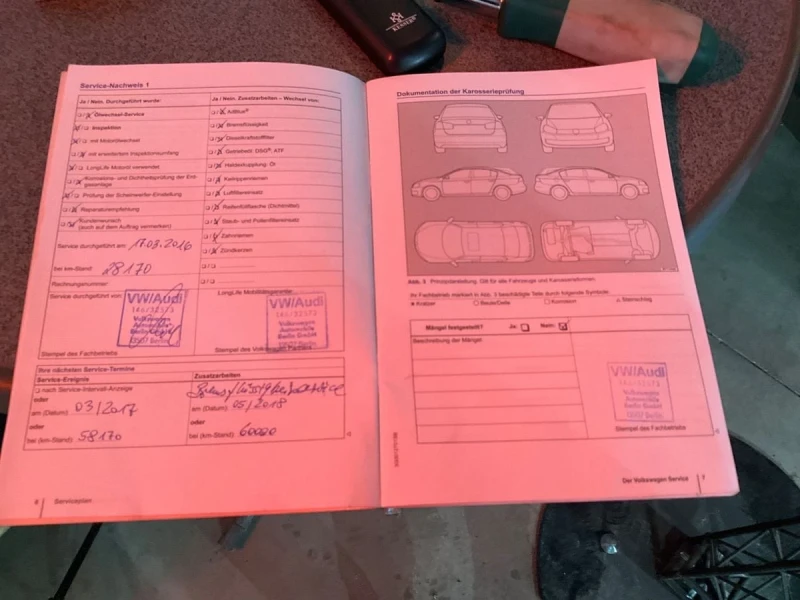 Service-Nachweis 1
Ja / Nein. Durchgeführt wurde:
Ölwechsel-Service
Inspektion
mit Motorölwechsel
mit erweitertem Inspektionsumfang
LongLife Motoröl verwendet
Korrosions- und Dichtheitsprüfung der Erdgasanlage
Prüfung der Scheinwerfer-Einstellung
Reparaturempfehlung
Kundenwunsch
(auch auf dem Auftrag vermerken)
Service durchgeführt am: 17.03.2016
bei km-Stand: 28170
Rechnungsnummer:
Service durchgeführt von:
VW/Audi
Volkswagen
Automobile
Berlin GmbH
Stempel des Fachbetriebs
Ja / Nein. Zusatzarbeiten – Wechsel von:
AdBlue®
Bremsflüssigkeit
Dieselkraftstofffilter
Getriebeöl: DSG®; ATF
Haldexkupplung: Öl
Keilrippenriemen
Luftfiltereinsatz
Reifenfüllflasche (Dichtmittel)
Staub- und Pollenfiltereinsatz
Zahnriemen
Zündkerzen
LongLife Mobilitätsgarantie
VW/Audi
Volkswagen
Automobile
Berlin GmbH
Stempel des Volkswagen Partners
Ihre nächsten Service-Termine
Service-Ereignis
nach Service-Intervall-Anzeige
oder
am (Datum): 03/2017
oder
bei (km-Stand): 58170
Zusatzarbeiten
am (Datum): 05/2018
oder
bei (km-Stand): 60000
8 Serviceplan
Dokumentation der Karosserieprüfung
Abb. 3 Prinzipdarstellung. Gilt für alle Fahrzeuge und Karosserieformen.
Ihr Fachbetrieb markiert in Abb. 3 beschädigte Teile durch folgende Symbole:
Kratzer
Beule/Delle
Korrosion
Steinschlag
Mängel festgestellt? Ja: Nein:
Beschreibung der Mängel
VW/Audi
Volkswagen
Automobile
Berlin GmbH
Stempel des Fachbetriebs
Der Volkswagen Service 7